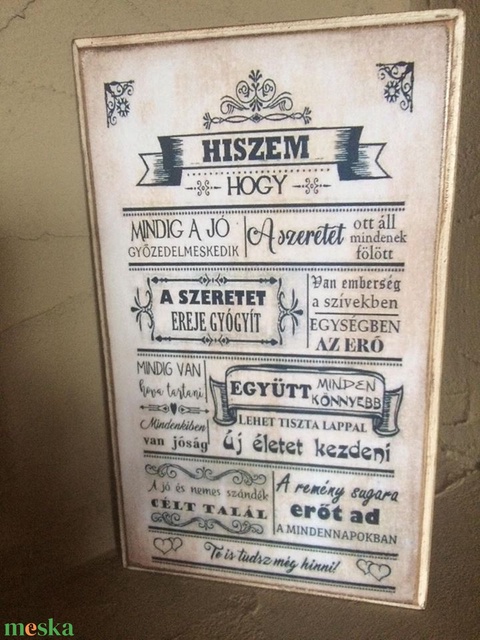 HISZEM
HOGY
MINDIG A JÓ
GYŐZEDELMESKEDIK
A szeretet
ott áll
mindenek
fölött
A SZERETET
EREJE GYÓGYÍT
Van emberség
a szívekben
EGYSÉGBEN
AZ ERŐ
MINDIG VAN
hova tartani
Mindenkiben
van jóság
EGYÜTT MINDEN
KÖNNYEBB
LEHET TISZTA LAPPAL
új életet kezdeni
A jó és nemes szándék
CÉLT TALÁL
A remény sugara
erőt ad
A MINDENNAPOKBAN
Te is tudsz még hinni!
meska